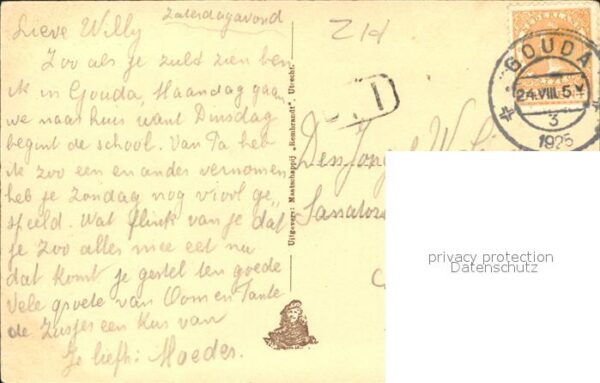 Zaterdagavond
Lieve Willy
Zoo als je zuld zien ben
ik in Gouda, Maandag gaan
we naar huis want Dinsdag
begint de school. Van Ta heb
ik zoo een en ander vernomen
heb je Zondag nog viool ge
speeld. Wat flink van je dat
je zoo alles mee eet nu
dat komt je gestel ten goede
Vele groete van Oom en Tante
de Zusjes een kus van
Je liefh: Moeder.
Uitgevers: Maatschappij „Rembrandt", Utrecht.
NEDERLAND
GOUDA
24.VIII.5
3
1925
Den Jong
privacy protection
Datenschutz